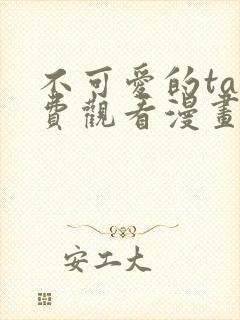 不可愛的ta
費觀看漫畫
安工大